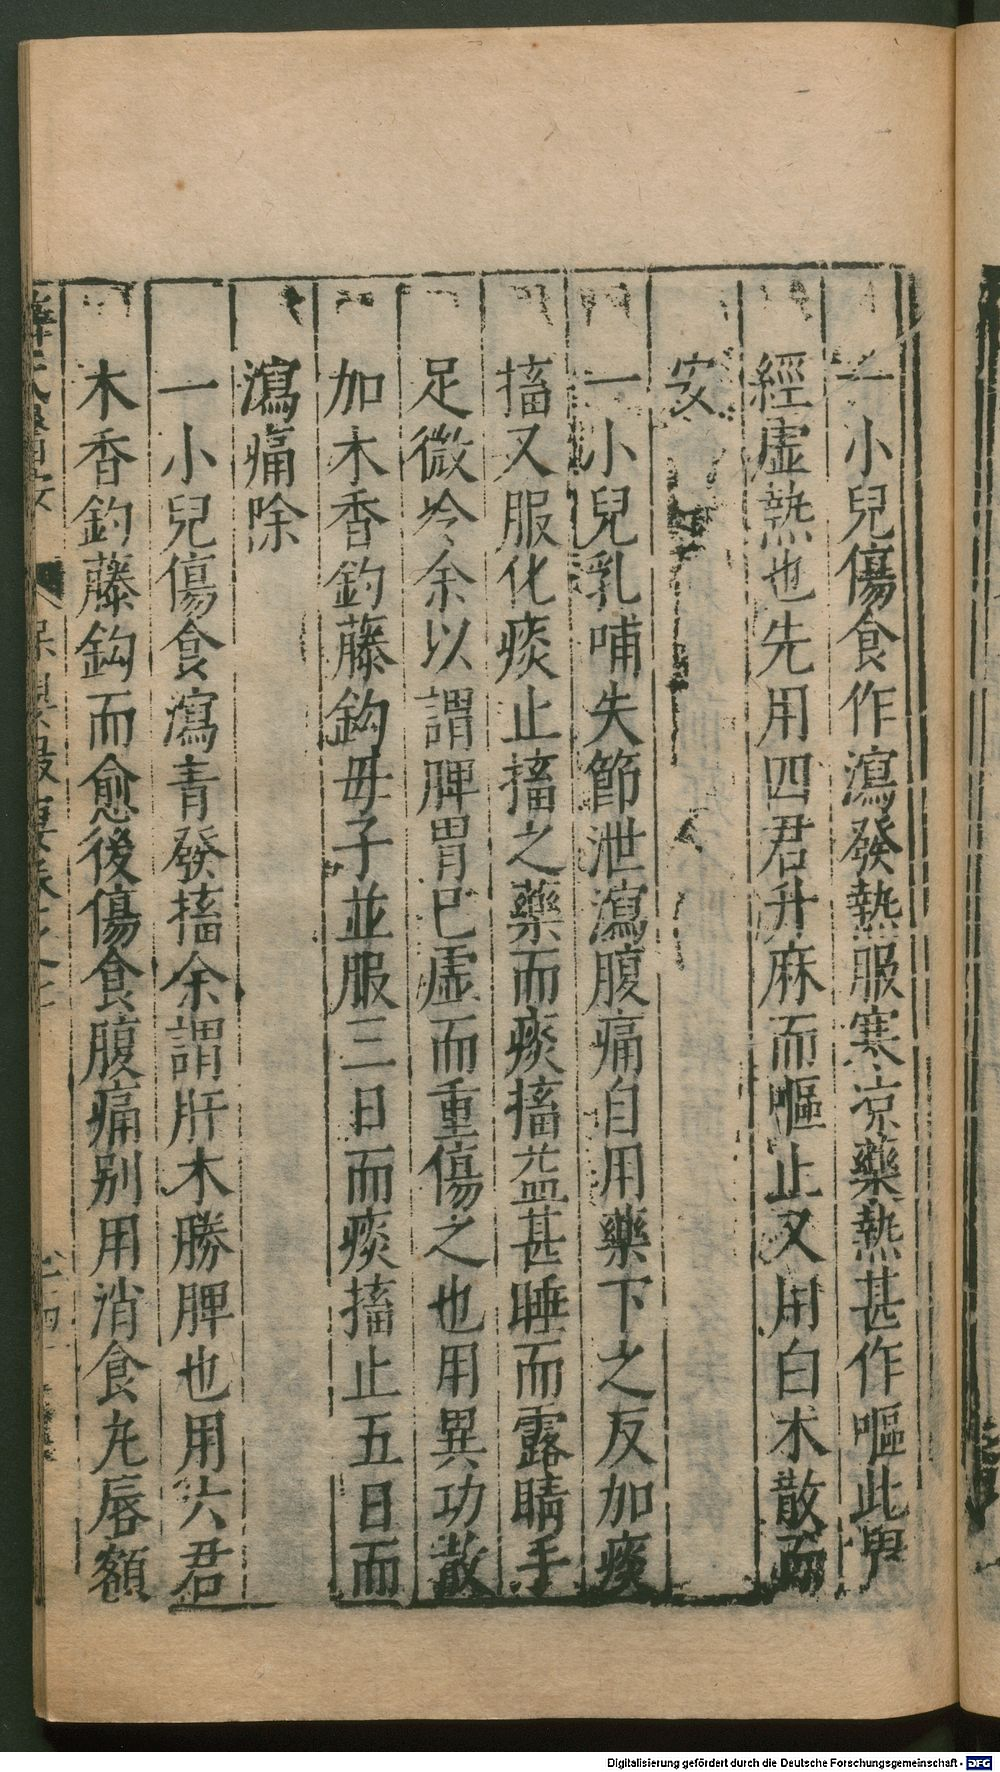 一小兒傷食作瀉發熱服寒凉藥熱甚作嘔此
經虛熱也先用四君升麻而嘔止又用白术散而
安
一小兒乳哺失節泄瀉腹痛自用藥下之反加痰
搐又服化痰止搐之藥而痰搐益甚睡而露睛手
足微冷余以謂脾胃已虛而重傷之也用異功散
加木香釣藤鈎母子並服三日而痰搐止五日而
瀉痛除
一小兒傷食瀉青發搐余謂肝木勝脾也用六君
木香釣藤鈎而愈後傷食腹痛别用消食丸唇額
Digitalisierung gefördert durch die Deutsche Forschungsgemeinschaft - DFG